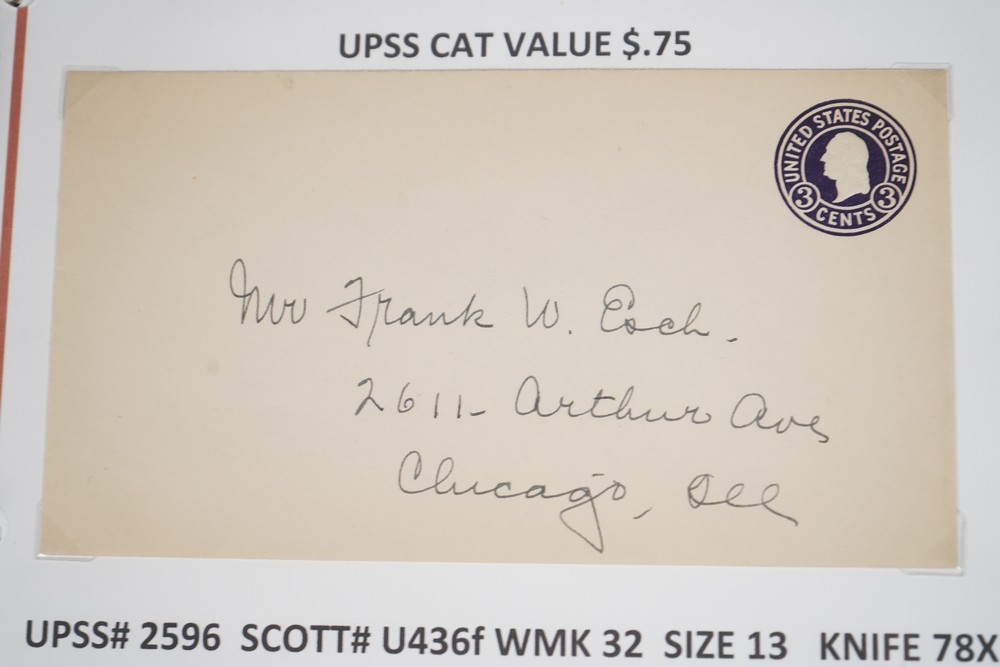 UPSS CAT VALUE $.75
UNITED STATES POSTAGE
3 CENTS 3
Mr Frank W. Esch.
2611- Arthur Ave
Chicago, Ill
UPSS# 2596 SCOTT# U436f WMK 32 SIZE 13 KNIFE 78X